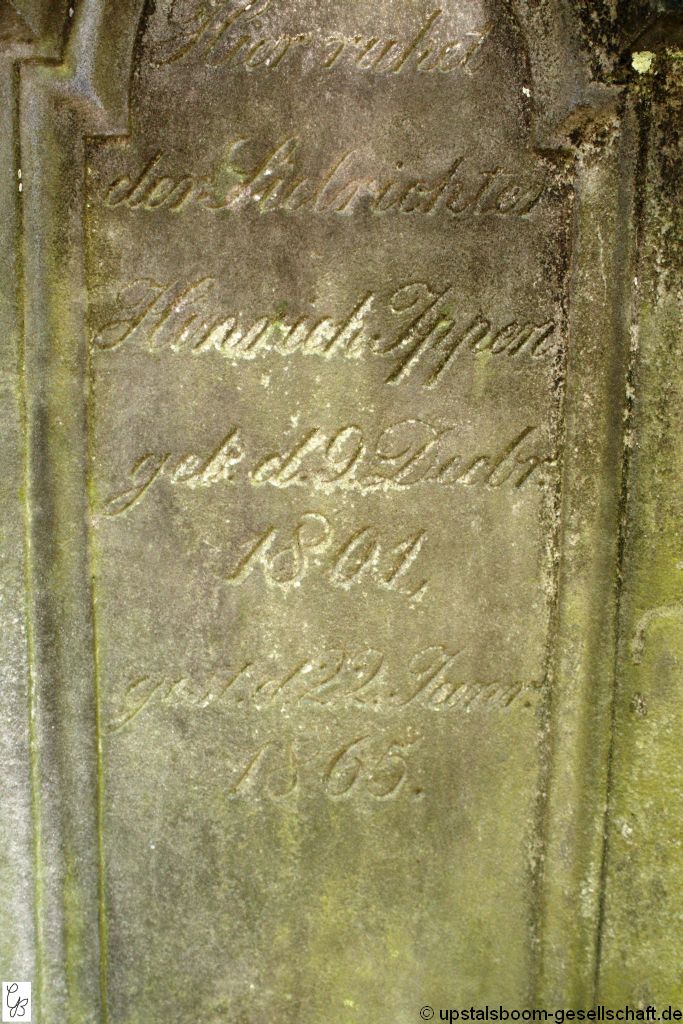 Hier ruhet
der Sielrichter
Hinrich Ippen
geb. d. 9. Decbr.
1801,
gest. d. 22. Janr.
1865.
GB
© upstalsboom-gesellschaft.de